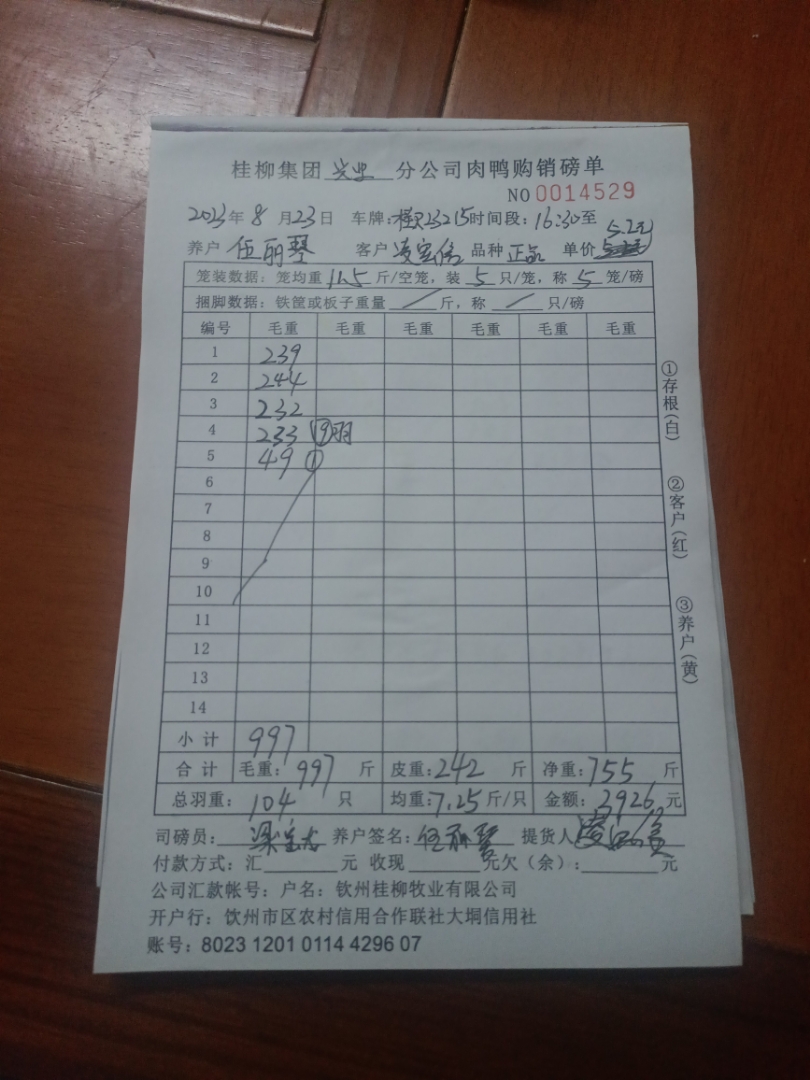 桂柳集团 兴业 分公司肉鸭购销磅单
NO 0014529
2023年8月23日 车牌:桂 23215 时间段:16:30至
5.2元
养户 伍丽琴 客户 凌 品种 正品 单价
笼装数据:笼均重 11.5 斤/空笼,装 5 只/笼,称 5 笼/磅
捆脚数据:铁筐或板子重量 / 斤,称 / 只/磅
编号 毛重 毛重 毛重 毛重 毛重 毛重
1 239
2 244
3 232
4 233 ⑲羽
5 49 ①
6
7
8
9
10
11
12
13
14
小计 997
合计 毛重:997 斤 皮重:242 斤 净重:755 斤
总羽重:104 只 均重:7.25斤/只 金额:3926元
司磅员: 养户签名:伍丽琴 提货人
付款方式:汇 元 收现 元欠(余): 元
公司汇款帐号:户名:钦州桂柳牧业有限公司
开户行:饮州市区农村信用合作联社大垌信用社
账号:8023 1201 0114 4296 07
①存根(白)
②客户(红)
③养户(黄)